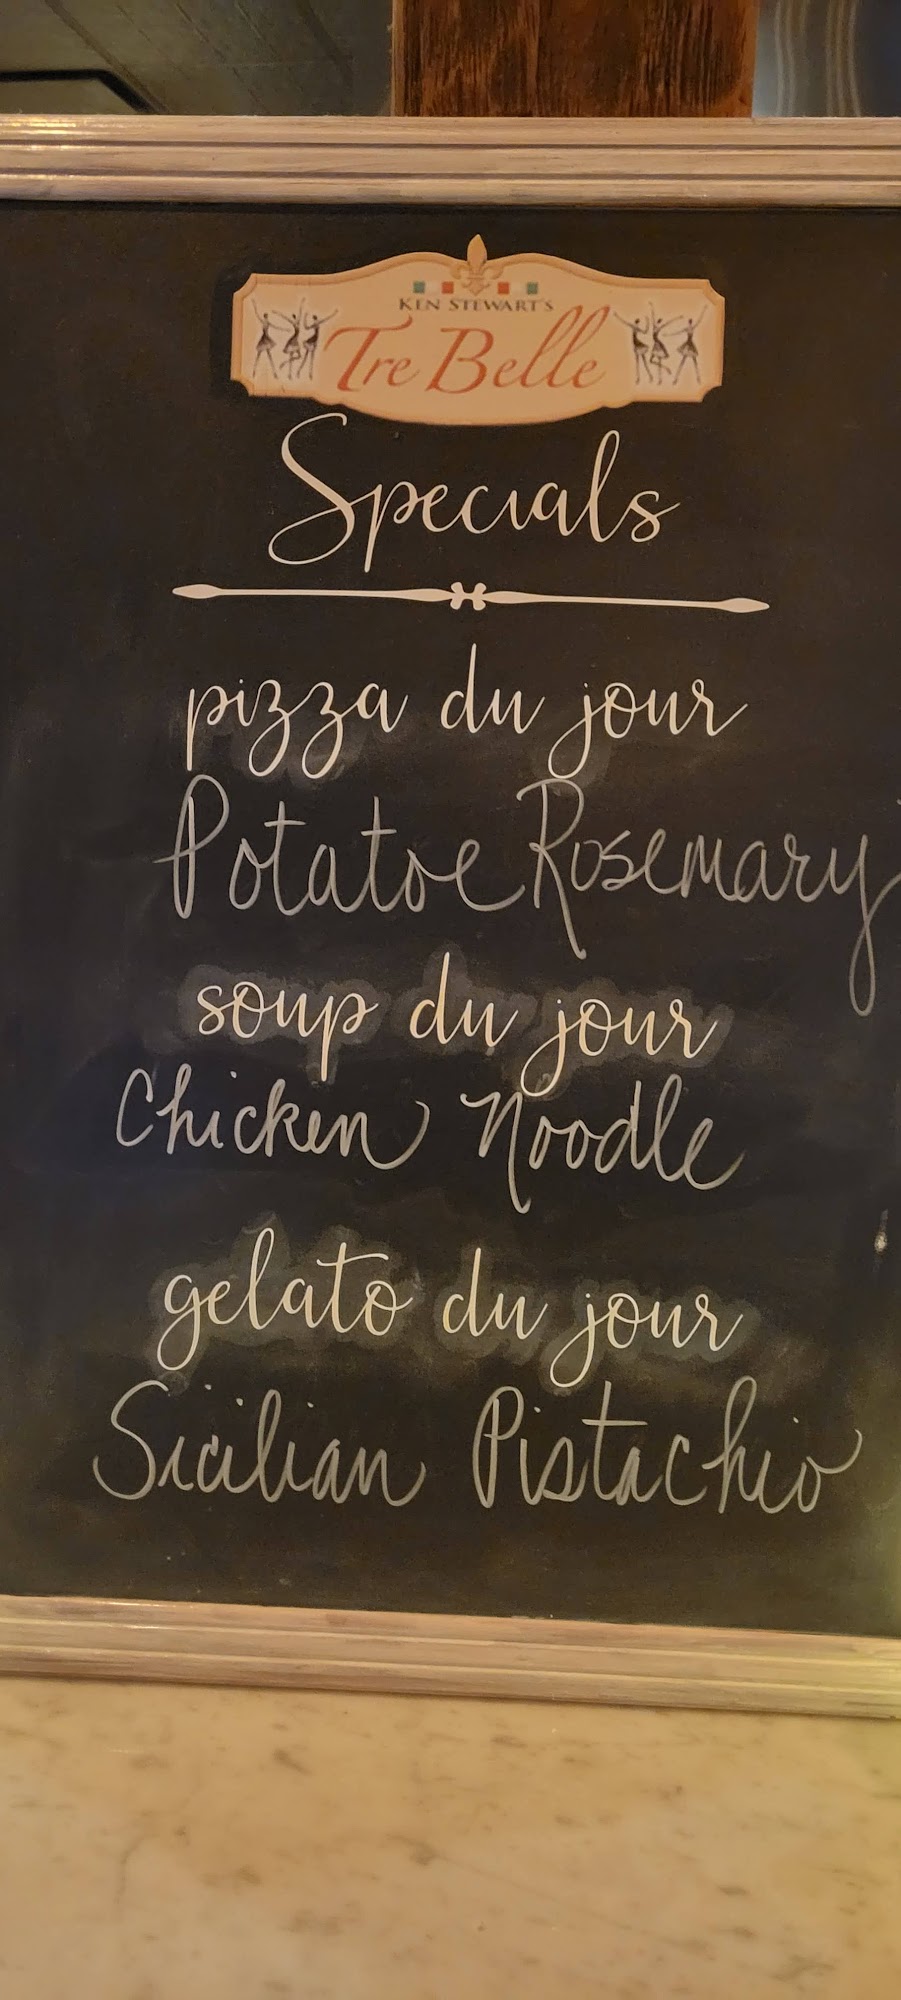 KEN STEWART'S
Tre Belle
Specials
pizza du jour
Potatoe Rosemary
soup du jour
Chicken Noodle
gelato du jour
Sicilian Pistachio